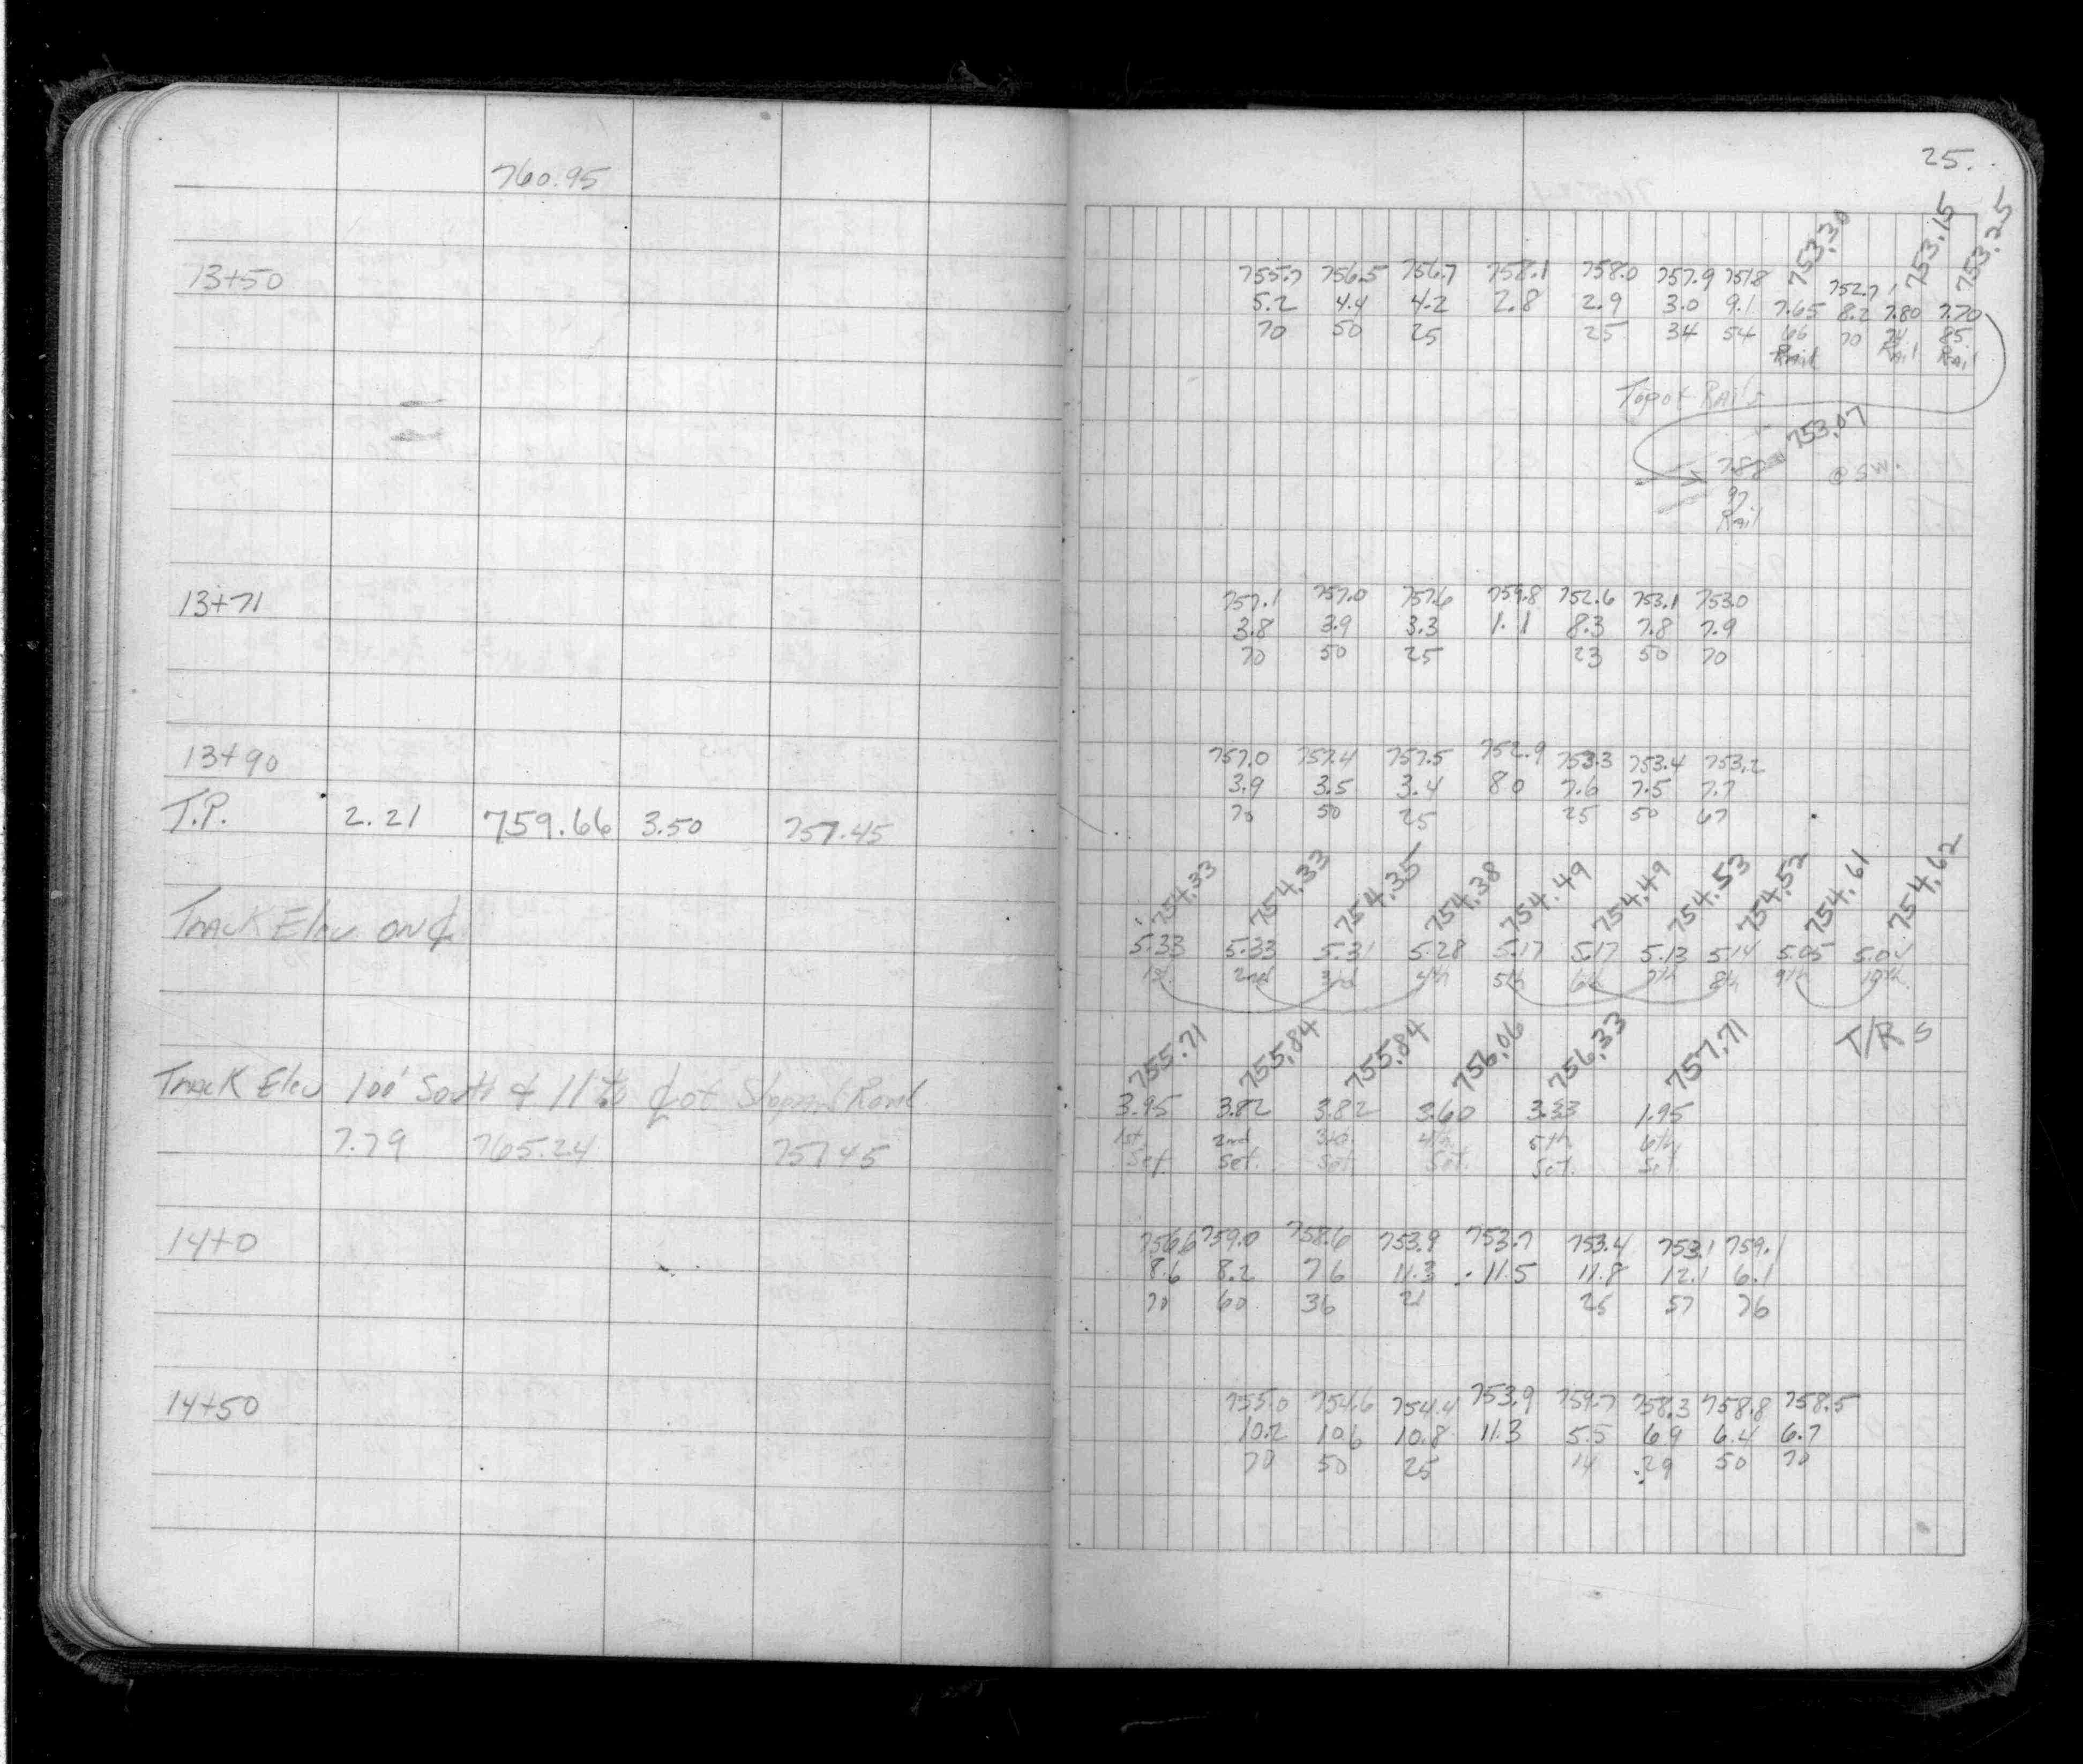 760.95
25.
753.30 753.15 753.25
13+50
755.7 756.5 756.7 758.1 758.0 757.9 751.8 752.7
5.2 4.4 4.2 2.8 2.9 3.0 9.1 7.65 8.2 7.80 7.70
70 50 25 25 34 54 66 70 74 85
Rail Rail Rail
Top of Rails
753.07
7.88 @ SW.
97
Rail
13+71
757.1 757.0 757.6 759.8 752.6 753.1 753.0
3.8 3.9 3.3 1.1 8.3 7.8 7.9
70 50 25 23 50 70
13+90
757.0 757.4 757.5 752.9 753.3 753.4 753.2
3.9 3.5 3.4 8.0 7.6 7.5 7.7
70 50 25 25 50 67
T.P. 2.21 759.66 3.50 757.45
754.33 754.33 754.35 754.38 754.49 754.49 754.53 754.52 754.61 754.62
Track Elev on ℄
5.33 5.33 5.31 5.28 5.17 5.17 5.13 5.14 5.05 5.04
1st 2nd 3rd 4th 5th 6th 7th 8th 9th 10th
T/R S
755.71 755.84 755.84 756.06 756.33 757.71
Track Elev 100' South of 11 ℄ of Road
3.95 3.82 3.82 3.60 3.33 1.95
1st 2nd 3rd 4th 5th 6th
Set. Set. Set. Set. Set. Set.
7.79 765.24 757.45
14+0
756.6 759.0 758.6 753.9 753.7 753.4 753.1 759.1
8.6 8.2 7.6 11.3 11.5 11.8 12.1 6.1
70 60 36 21 25 57 76
14+50
755.0 754.6 754.4 753.9 759.7 758.3 758.8 758.5
10.2 10.6 10.8 11.3 5.5 6.9 6.4 6.7
70 50 25 14 29 50 70